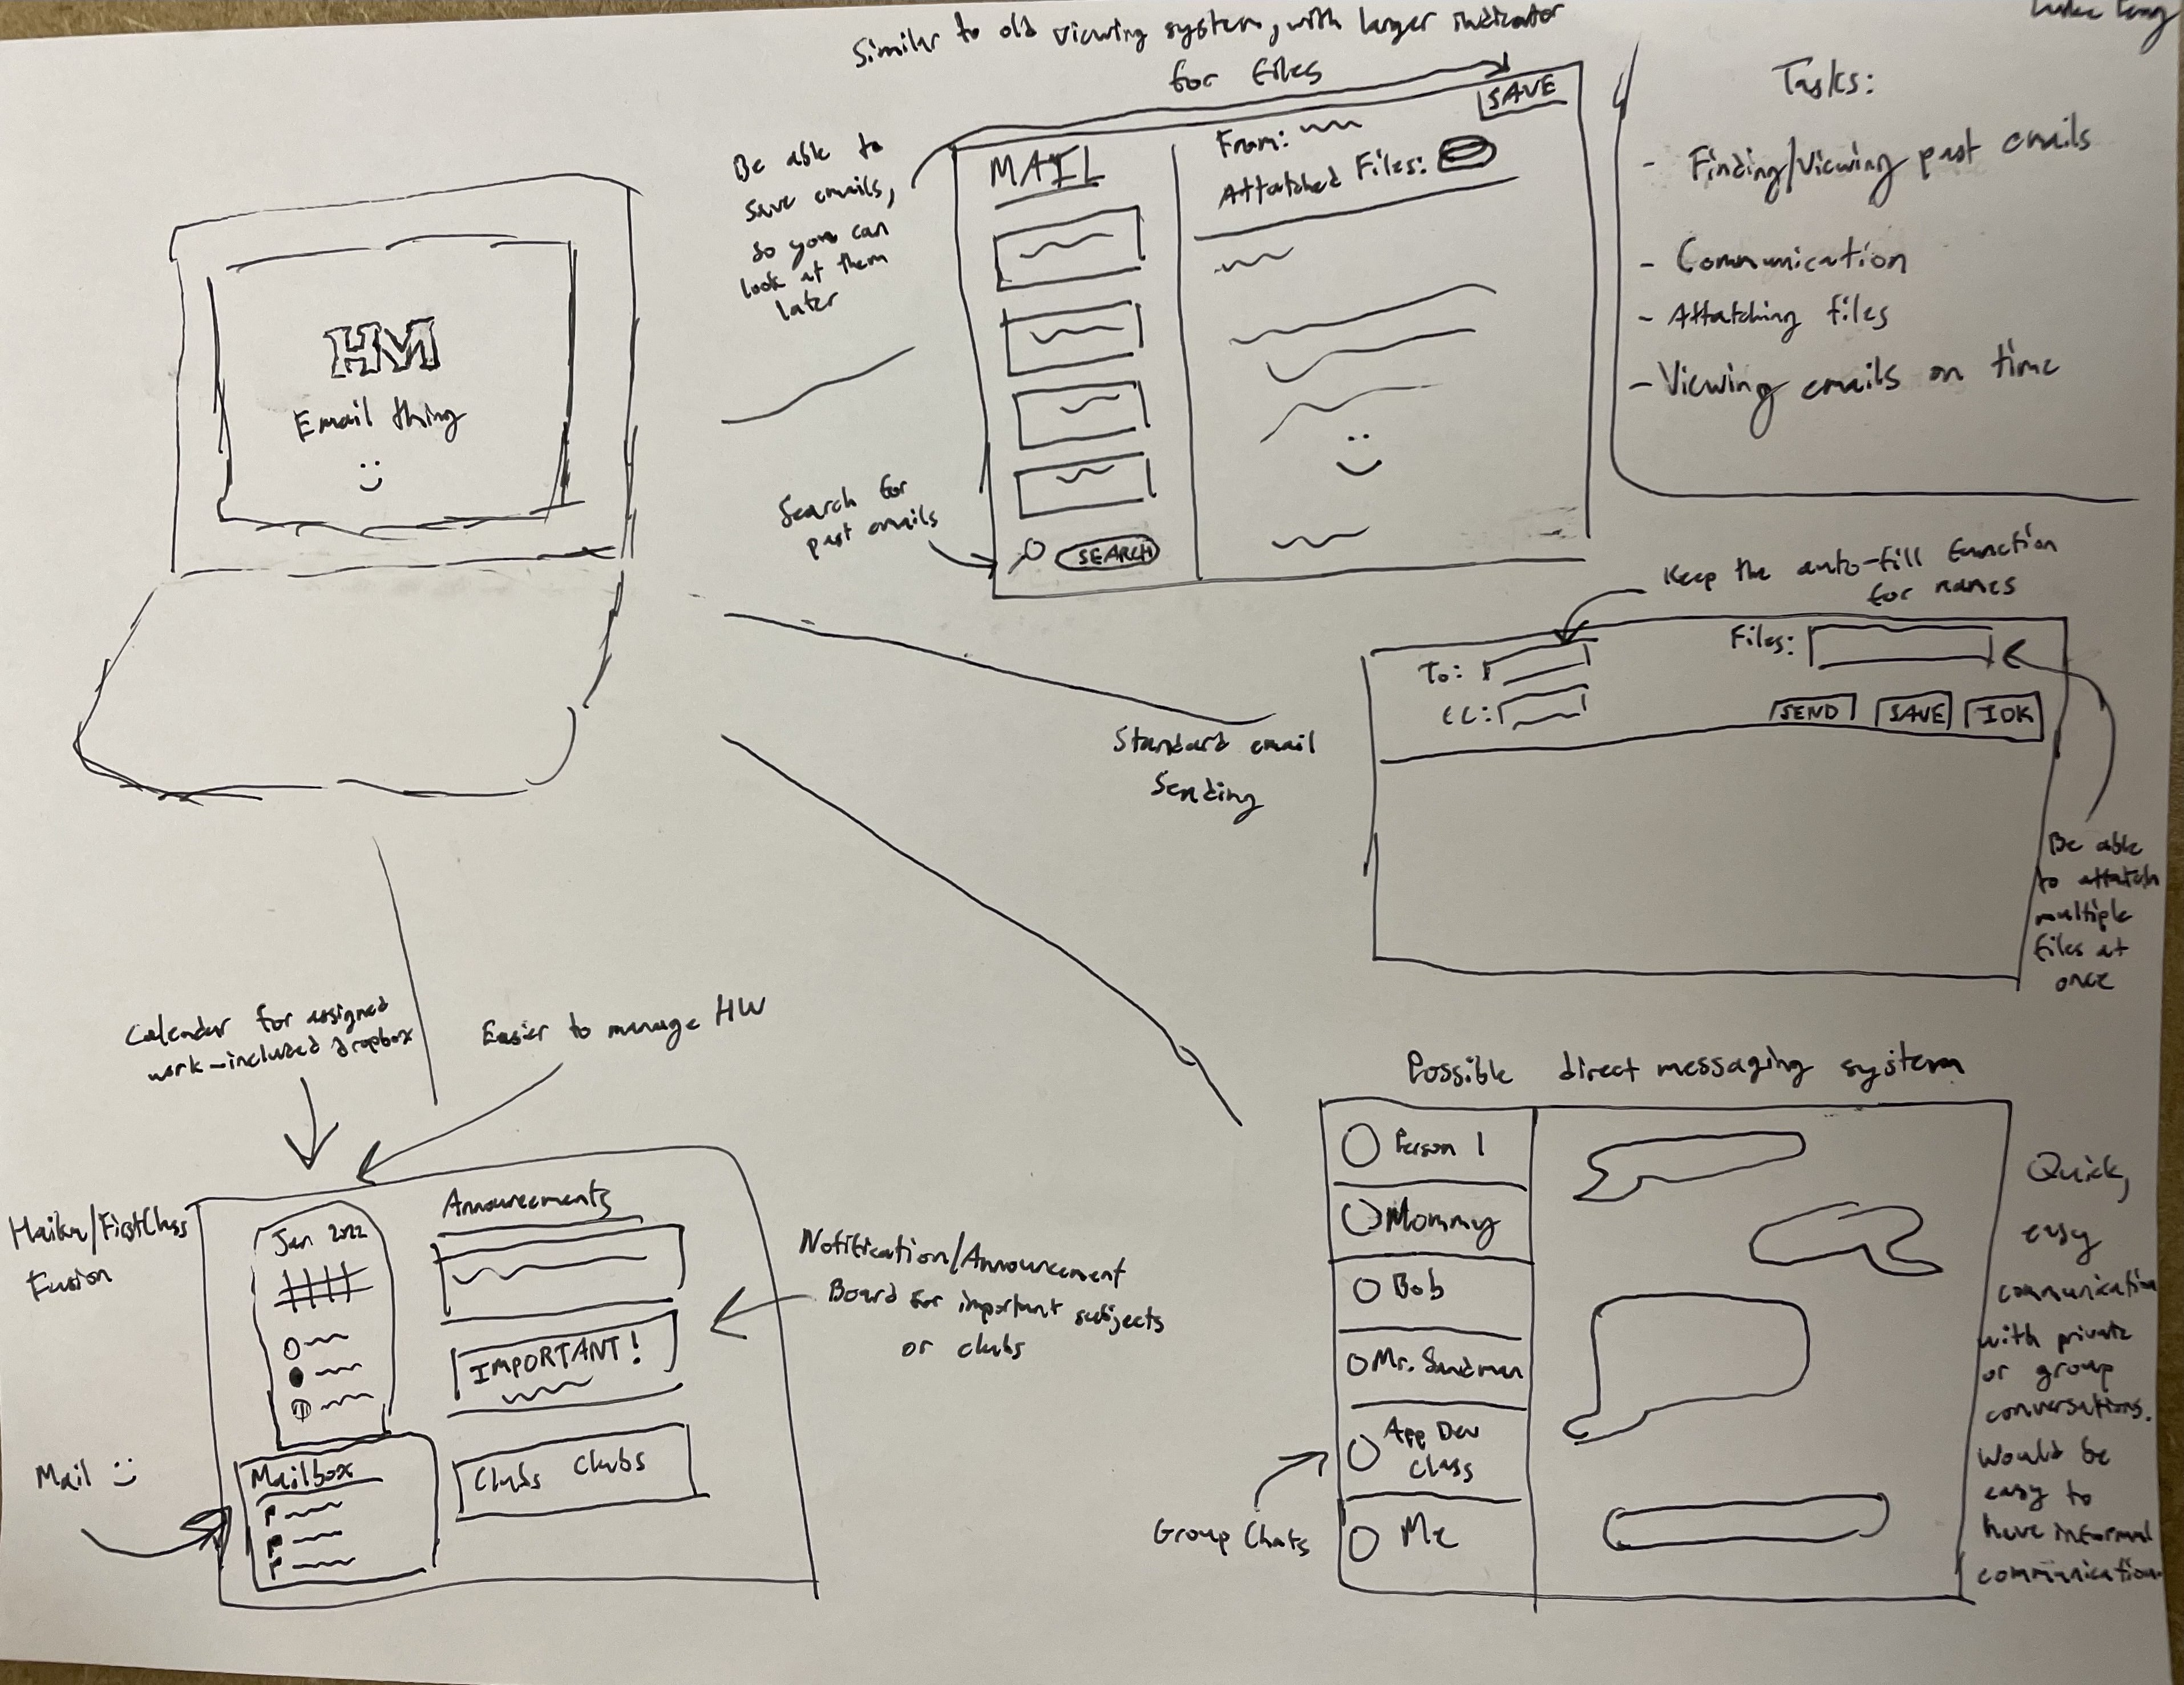 Similar to old viewing system, with larger indicator
for files
Be able to
save emails,
so you can
look at them
later
MAIL
From:
Attatched Files:
SAVE
Search for
past emails
SEARCH
Tasks:
- Finding/Viewing past emails
- Communication
- Attatching files
- Viewing emails on time
HM
Email thing
Keep the auto-fill function
for names
To:
CC:
Files:
SEND
SAVE
IDK
Standard email
Sending
Be able
to attatch
multiple
files at
once
Calendar for assigned
work-included dropbox
Easier to manage HW
Haiku/FirstClass
Fusion
Jan 2022
Announcements
IMPORTANT!
Clubs Clubs
Mailbox
Mail
Notification/Announcement
Board for important subjects
or clubs
Possible direct messaging system
Person 1
Mommy
Bob
Mr. Sandman
App Dev
Class
Me
Group Chats
Quick,
easy
communication
with private
or group
conversations.
Would be
easy to
have informal
communication.